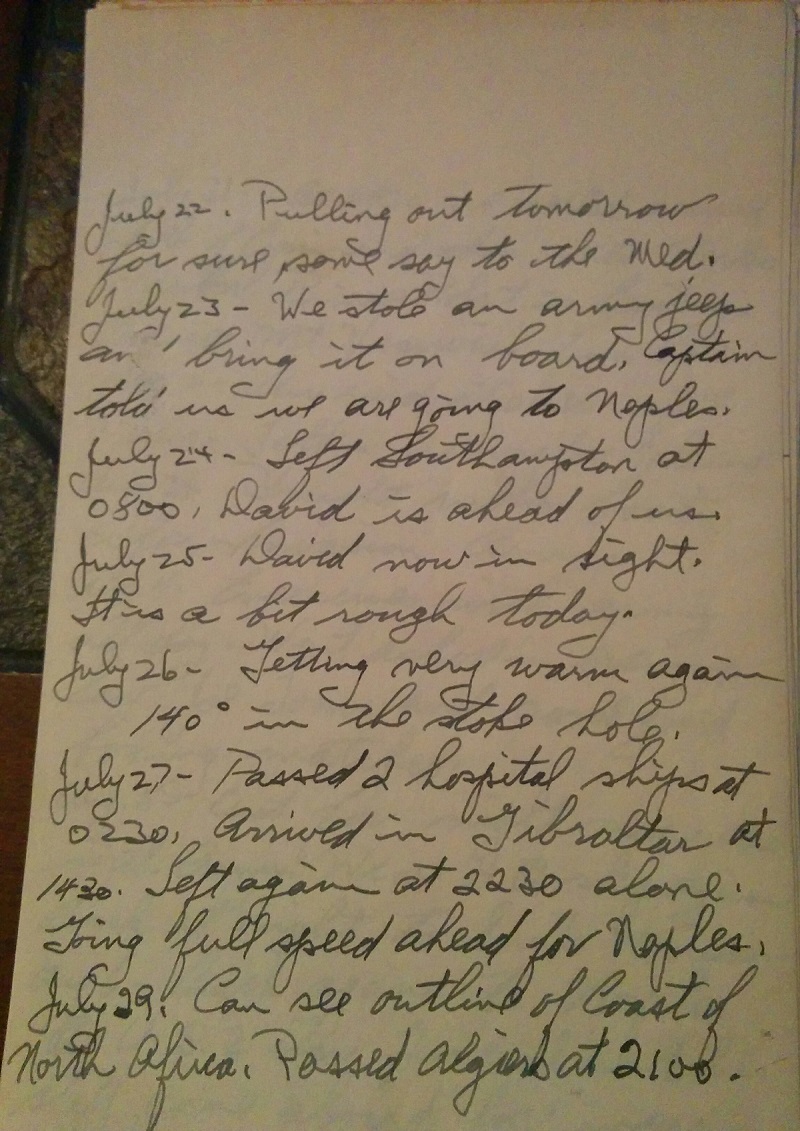 July 22. Pulling out tomorrow
for sure, some say to the Med.
July 23 - We stole an army jeep
an' bring it on board. Captain
told us we are going to Naples.
July 24 - Left Southampton at
0800, David is ahead of us.
July 25 - David now in sight.
It is a bit rough today.
July 26 - Getting very warm again
140° in the stoke hole.
July 27 - Passed 2 hospital ships at
0230, Arrived in Gibraltar at
1430. Left again at 2230 alone.
Going full speed ahead for Naples.
July 29. Can see outline of Coast of
North Africa. Passed Algiers at 2100.